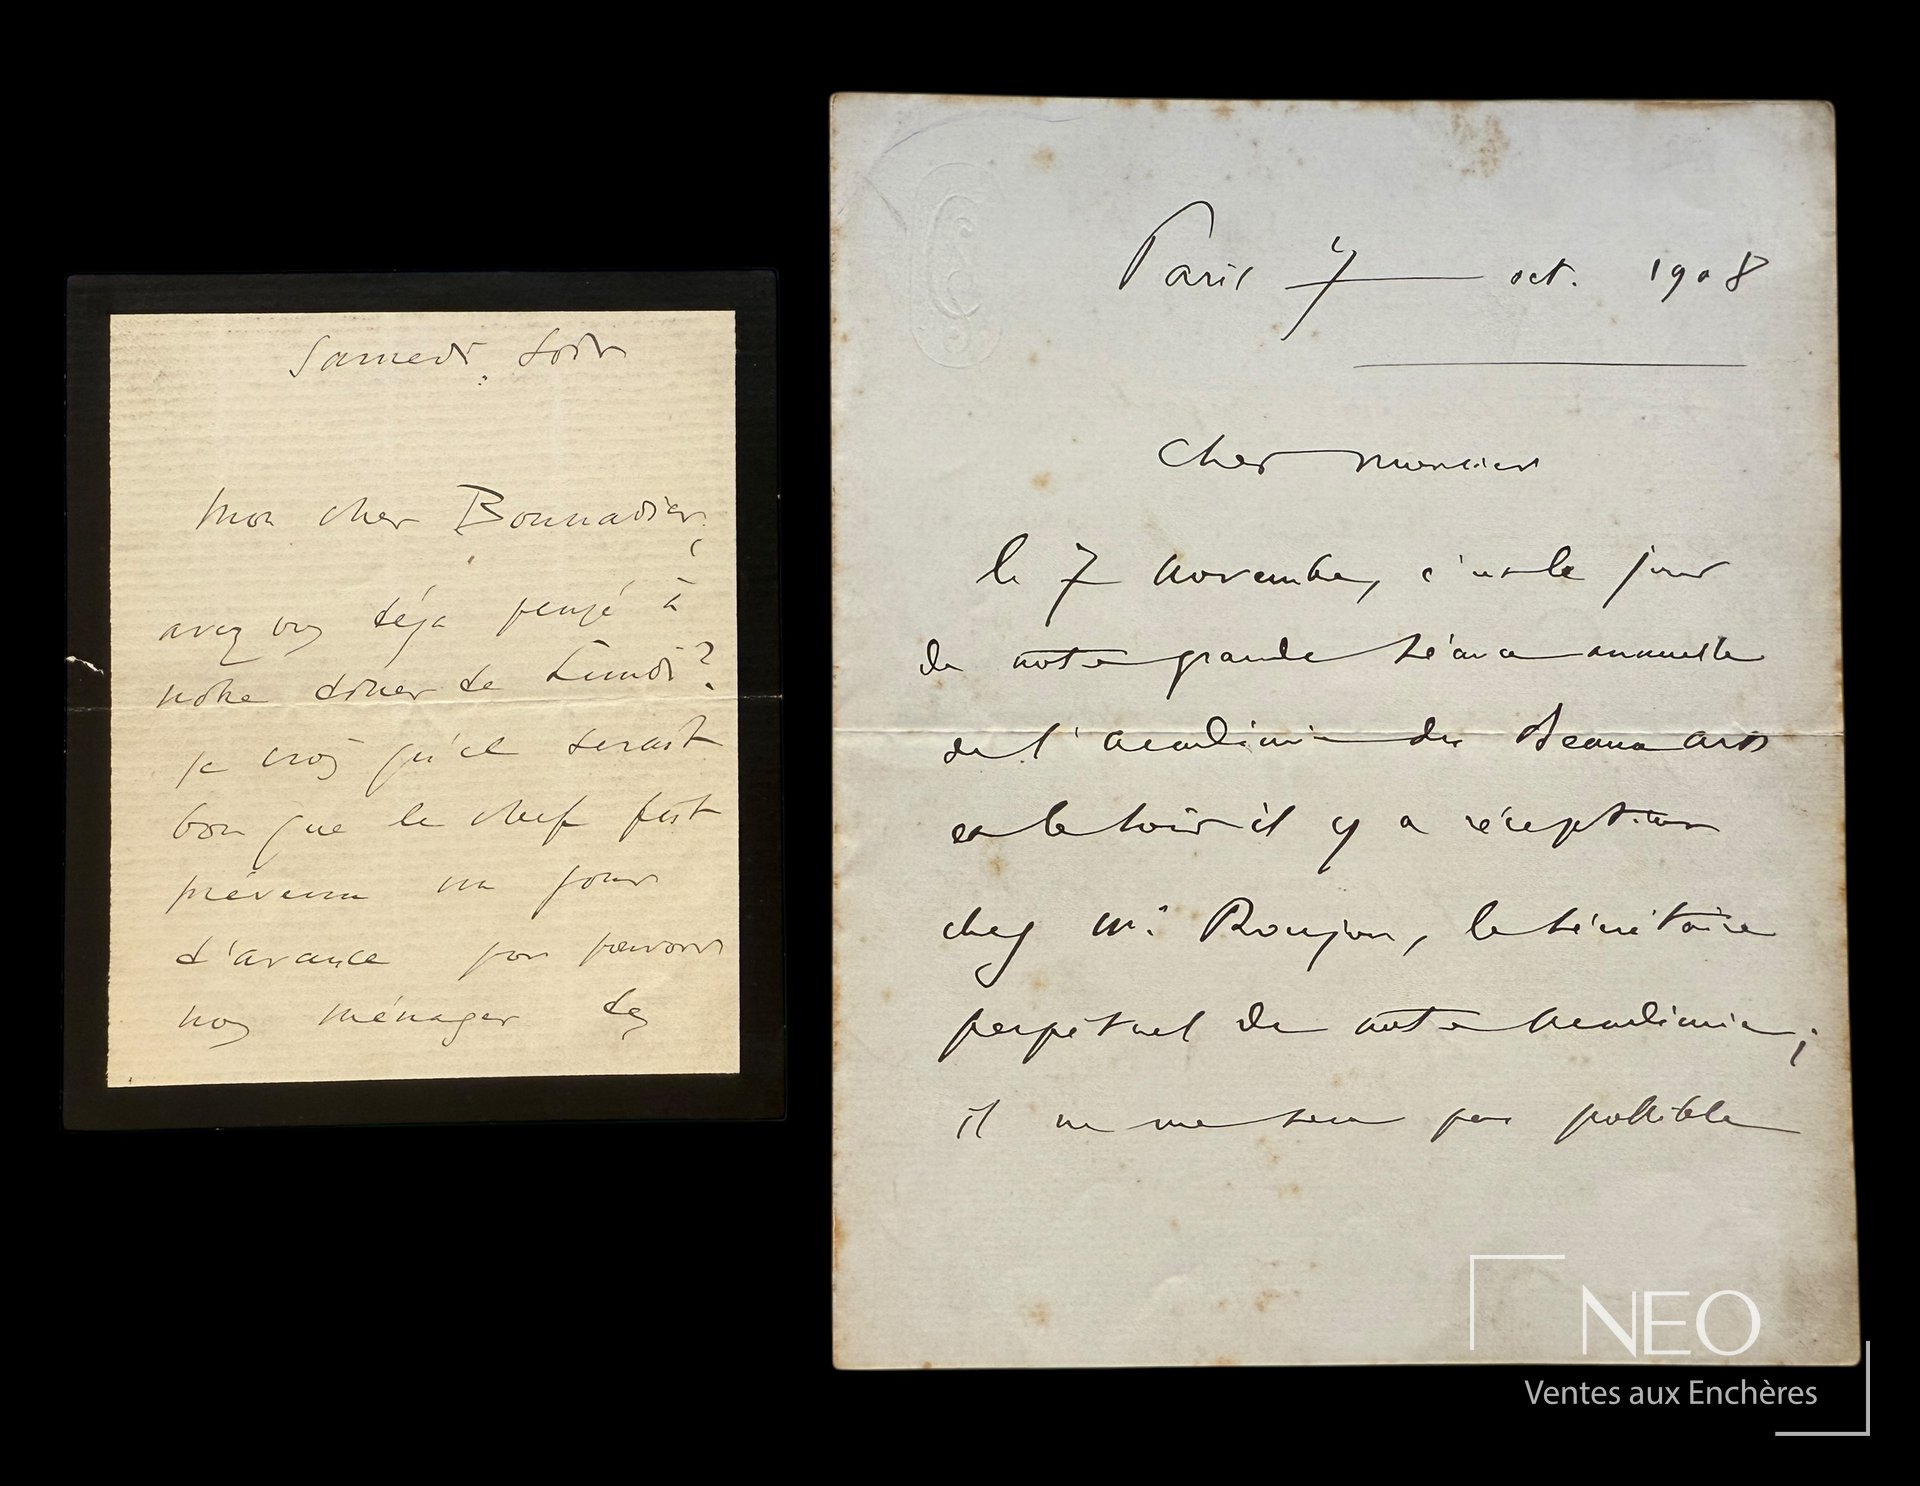 Samedi soir
Mon cher Bonnadier,
avez vous déjà pensé à
notre dîner de Lundi?
je crois qu'il serait
bon que le chef fût
prévenu un jour
d'avance pour pouvoir
nous ménager des
Paris 7 oct. 1908
Cher Monsieur
le 7 novembre, c'est le jour
de notre grande séance annuelle
de l'académie des Beaux arts
et le soir il y a réception
chez Mr. Roujon, le secrétaire
perpétuel de notre académie;
il ne me sera pas possible
NEO
Ventes aux Enchères